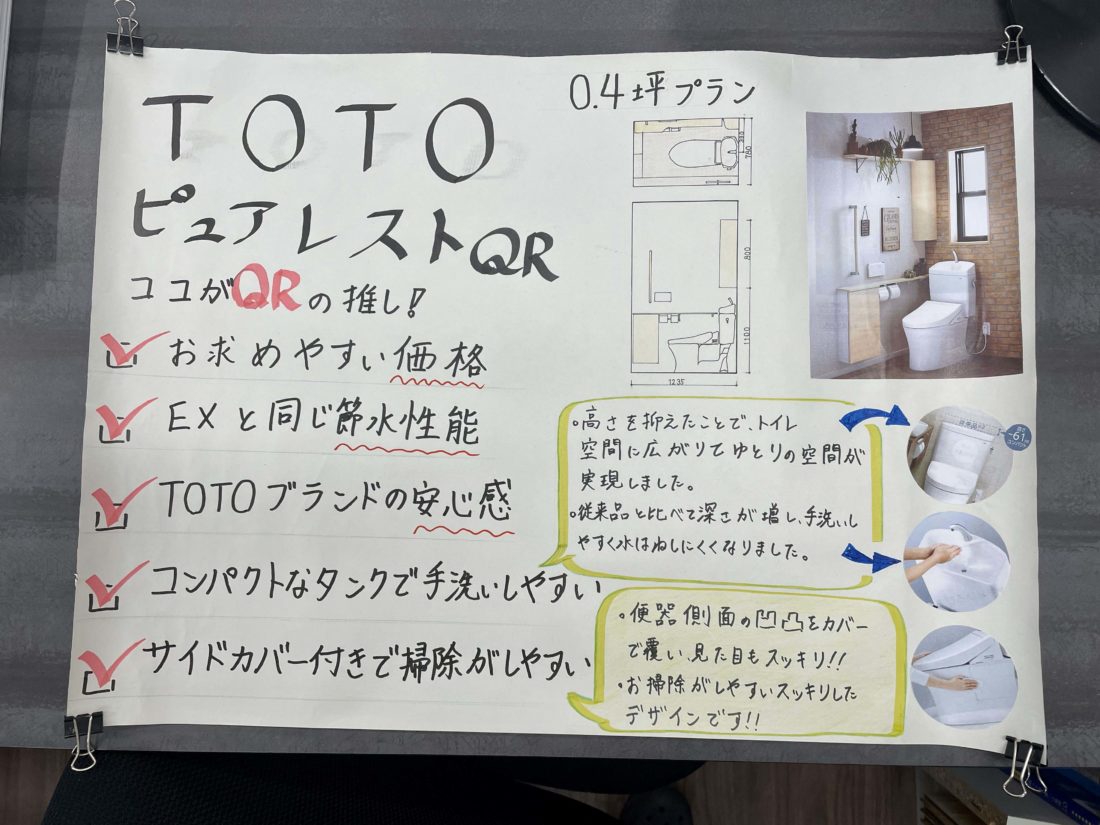 TOTO
ピュアレストQR
ココがQRの推し!
お求めやすい価格
EXと同じ節水性能
TOTOブランドの安心感
コンパクトなタンクで手洗いしやすい
サイドカバー付きで掃除がしやすい
0.4坪プラン
780
800
1100
1235
。高さを抑えたことで、トイレ
空間に広がりてゆとりの空間が
実現しました。
。従来品と比べて深さが増し、手洗いし
やすく水はねしにくくなりました。
。便器側面の凹凸をカバー
で覆い、見た目もスッキリ!!
・お掃除がしやすいスッキリした
デザインです!!
高さ
-61
コンパクト